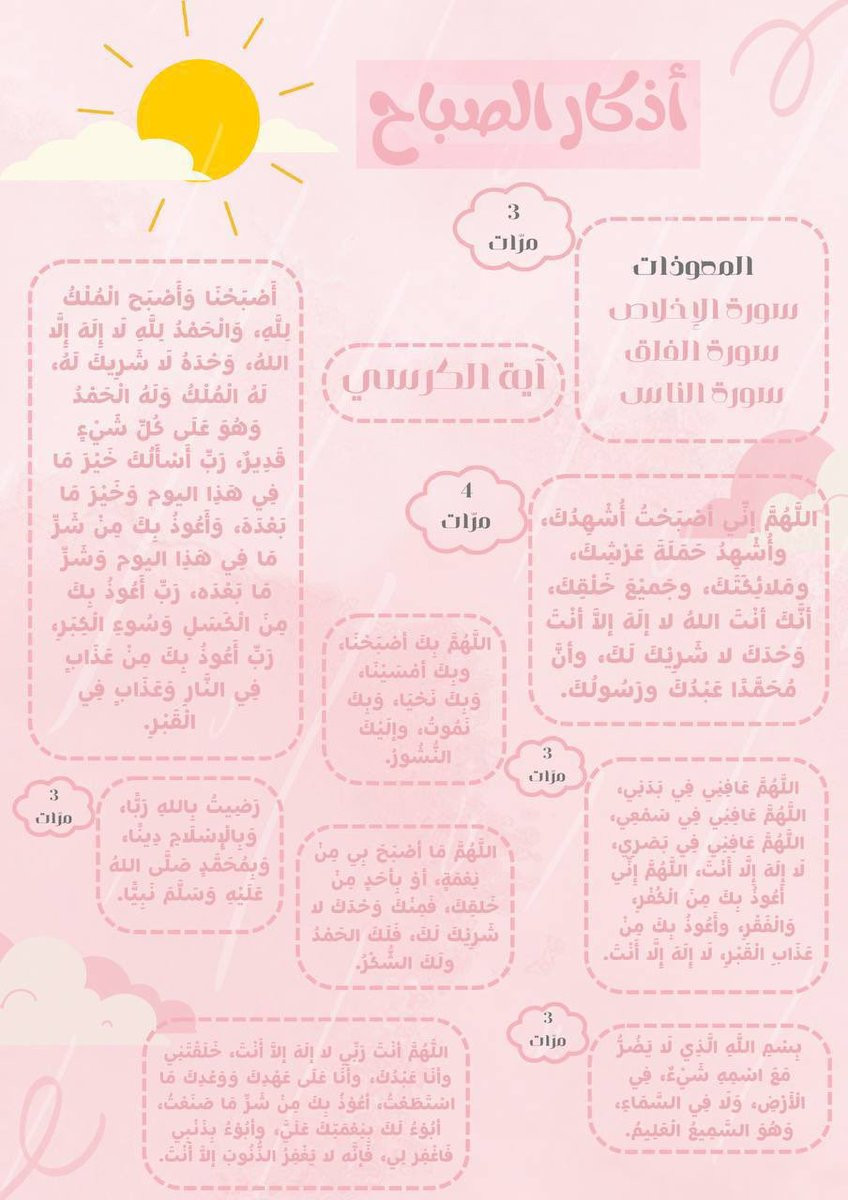 أذكار الصباح
3
مرّات
المعوذات
سورة الإخلاص
سورة الفلق
سورة الناس
آية الكرسي
أَصْبَحْنَا وَأَصْبَح الْمُلْكُ
لِلَّهِ، وَالْحَمْدُ لِلَّهِ لَا إِلَهَ إِلَّا
اللهُ، وَحْدَهُ لَا شَرِيكَ لَهُ،
لَهُ الْمُلْكُ وَلَهُ الْحَمْدُ
وَهُوَ عَلَى كُلِّ شَيْءٍ
قَدِيرٌ، رَبِّ أَسْأَلُكَ خَيْرَ مَا
فِي هَذِا اليوم وَخَيْرَ مَا
بَعْدَهَ، وَأَعُوذُ بِكَ مِنْ شَرِّ
مَا فِي هَذِا اليوم وَشَرِّ
مَا بَعْدَه، رَبِّ أَعُوذُ بِكَ
مِنَ الْكَسَلِ وَسُوءِ الْكِبَرِ،
رَبِّ أَعُوذُ بِكَ مِنْ عَذَابٍ
فِي النَّارِ وَعَذَابٍ فِي
الْقَبْرِ.
4
مرّات
اللَّهُمَّ إنِّي أصْبَحْتُ أُشْهِدُكَ،
وأُشْهِدُ حَمَلَةَ عَرْشِكَ،
ومَلائِكَتَكَ، وجَميْعَ خَلْقِكَ،
أنَّكَ أنْتَ اللهُ لا إلَهَ إلاَّ أنْتَ
وَحْدَكَ لا شَرِيْكَ لَكَ، وأنَّ
مُحَمَّدًا عَبْدُكَ ورَسُولُكَ.
اللَّهُمَّ بِكَ أصْبَحْنَا،
وبِكَ أمْسَيْنَا،
وَبِكَ نَحْيَا، وَبِكَ
نَمُوتُ، وإلَيْكَ
النُّشُورُ.
3
مرّات
اللَّهُمَّ عَافِنِي فِي بَدَنِي،
اللَّهُمَّ عَافِنِي فِي سَمْعِي،
اللَّهُمَّ عَافِنِي فِي بَصَرِي،
لَا إِلَهَ إِلَّا أَنْتَ، اللَّهُمَّ إِنِّي
أَعُوذُ بِكَ مِنَ الْكُفْرِ،
وَالْفَقْرِ، وأَعُوذُ بِكَ مِنْ
عَذَابِ الْقَبْرِ، لَا إِلَهَ إِلَّا أَنْتَ.
3
مرّات
رَضِيتُ بِاللهِ رَبًّا،
وَبِالْإِسْلَامِ دِينًا،
وَبِمُحَمَّدٍ صَلَّى اللهُ
عَلَيْهِ وَسَلَّمَ نَبِيًّا.
اللَّهُمَّ مَا أصْبَحَ بِي مِنْ
نِعْمَةٍ، أوْ بِأَحَدٍ مِنْ
خَلقِكَ، فَمِنْكَ وَحْدَكَ لا
شَرِيْكَ لَكَ، فَلَكَ الحَمْدُ
ولَكَ الشُّكْرُ.
3
مرّات
بِسْمِ اللَّهِ الَّذِي لَا يَضُرُّ
مَعَ اسْمِهِ شَيْءٌ، فِي
الْأَرْضِ، وَلَا فِي السَّمَاءِ،
وَهُوَ السَّمِيعُ الْعَلِيمُ.
اللَّهُمَّ أنْتَ رَبِّي لا إلَهَ إلاَّ أَنْتَ، خَلَقْتَنِي
وأنَا عَبْدُكَ، وأنَا عَلَى عَهْدِكَ وَوَعْدِكَ مَا
اسْتَطَعْتُ، أعُوْذُ بِكَ مِنْ شَرِّ مَا صَنَعْتُ،
أبُوْءُ لَكَ بِنِعْمَتِكَ عَلَيَّ، وأبُوْءُ بِذَنْبِي
فَاغْفِرْ لِي، فَإنَّه لا يَغْفِرُ الذُّنُوبَ إلاَّ أَنْتَ.